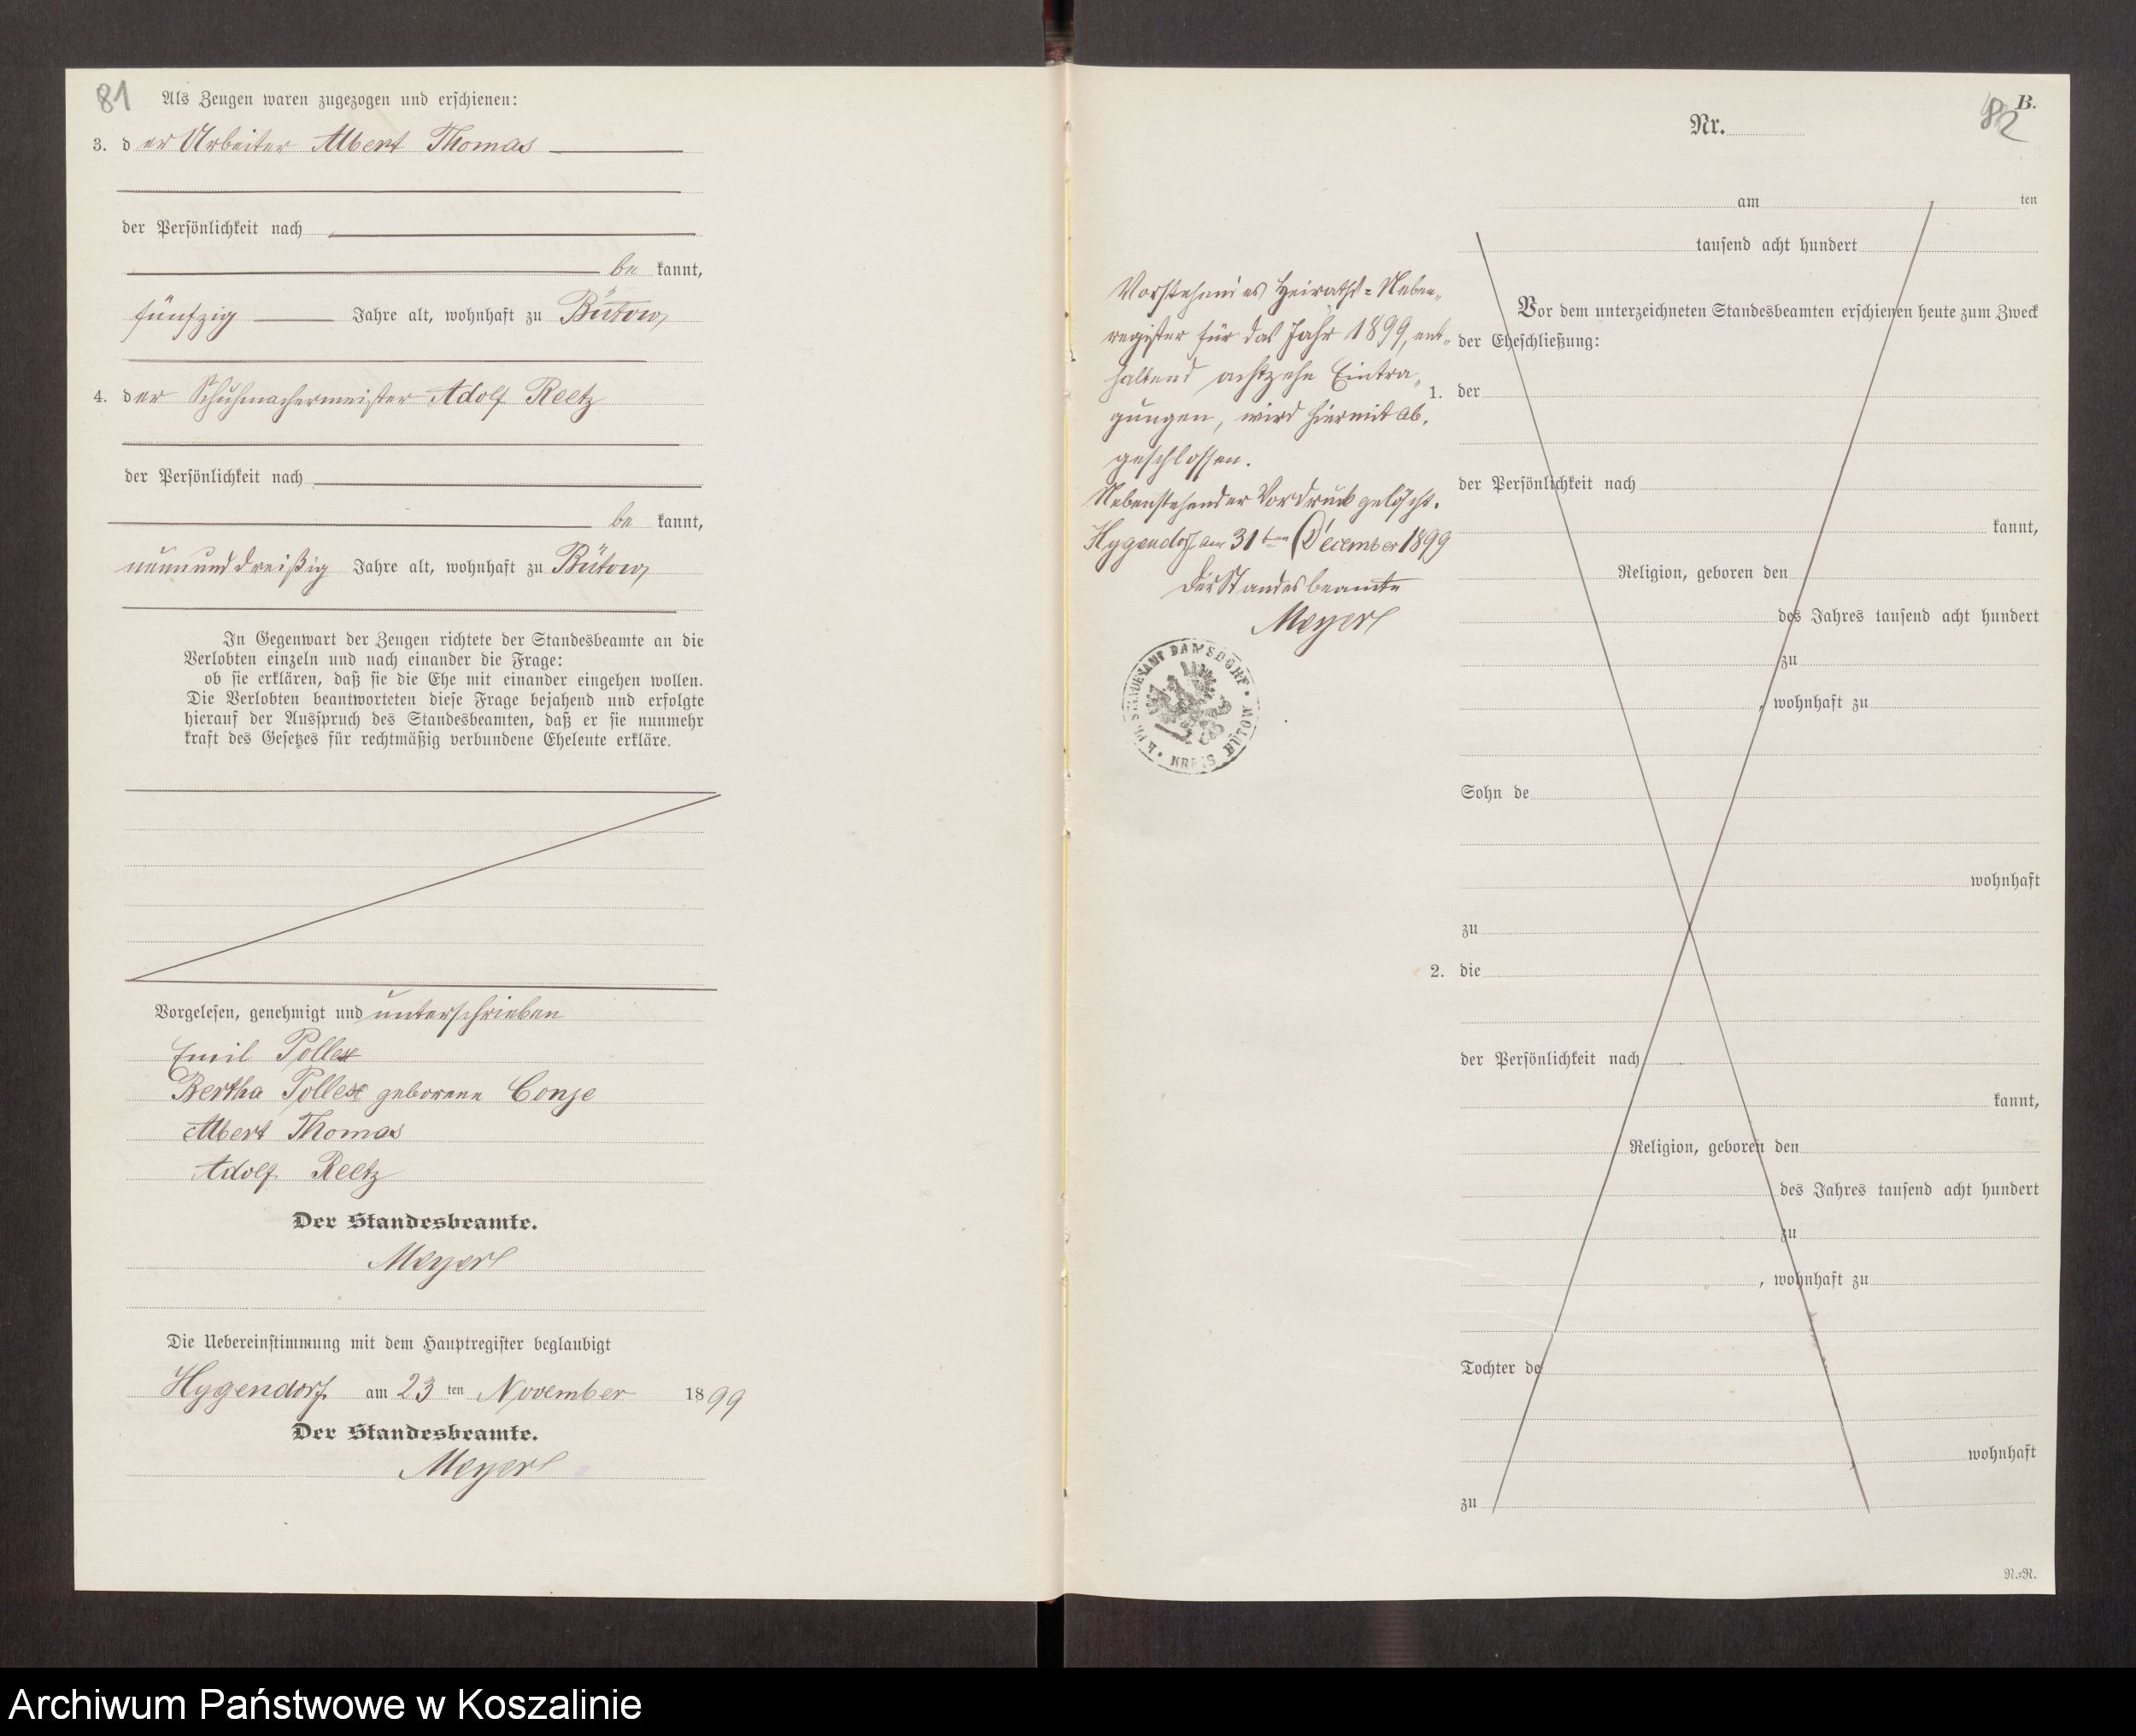 81
Als Zeugen waren zugezogen und erschienen:
3. der Arbeiter Albert Thomas
der Persönlichkeit nach
be kannt,
fünfzig Jahre alt, wohnhaft zu Bütow
4. der Schuhmachermeister Adolf Reetz
der Persönlichkeit nach
be kannt,
neununddreißig Jahre alt, wohnhaft zu Bütow
In Gegenwart der Zeugen richtete der Standesbeamte an die
Verlobten einzeln und nach einander die Frage:
ob sie erklären, daß sie die Ehe mit einander eingehen wollen.
Die Verlobten beantworteten diese Frage bejahend und erfolgte
hierauf der Ausspruch des Standesbeamten, daß er sie nunmehr
kraft des Gesetzes für rechtmäßig verbundene Eheleute erkläre.
Vorgelesen, genehmigt und unterschrieben
Emil Pollex
Bertha Pollex geborene Conje
Albert Thomas
Adolf Reetz
Der Standesbeamte.
Meyer
Die Uebereinstimmung mit dem Hauptregister beglaubigt
Hygendorf am 23 ten November 1899
Der Standesbeamte.
Meyer
B.
82
Nr.
am ten
tausend acht hundert
Vor dem unterzeichneten Standesbeamten erschienen heute zum Zweck
der Eheschließung:
1. der
der Persönlichkeit nach
kannt,
Religion, geboren den
des Jahres tausend acht hundert
zu
, wohnhaft zu
Sohn de
wohnhaft
zu
2. die
der Persönlichkeit nach
kannt,
Religion, geboren den
des Jahres tausend acht hundert
zu
, wohnhaft zu
Tochter de
wohnhaft
zu
N.=N.
Vorstehendes Heiraths-Neben-
register für das Jahr 1899, ent-
haltend achtzehn Eintra-
gungen, wird hiermit ab-
geschlossen.
Nebenstehender Vordruck gelöscht.
Hygendorf am 31ten December 1899
Der Standesbeamte
Meyer
STANDESAMT DAMSDORF
KREIS BÜTOW
Archiwum Państwowe w Koszalinie